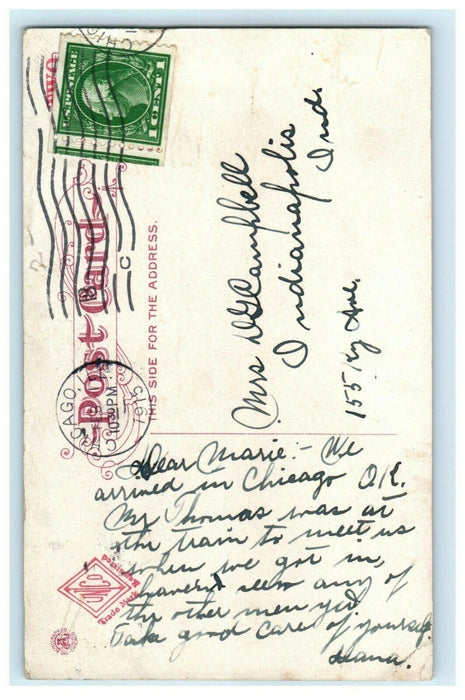 U.S. POSTAGE
1 CENT 1
Post Card
THIS SIDE FOR THE ADDRESS.
CHICAGO, ILL.
FEB
10 30 PM
1915
C
Mrs D G Campbell
Indianapolis
Ind.
155 Ky Ave.
Dear Marie:- We
arrived in Chicago O.K.
Mr Thomas was at
the train to meet us
when we got in,
haven't seen any of
the other men yet.
Take good care of yourself.
Dana.
Registered
Trade Mark